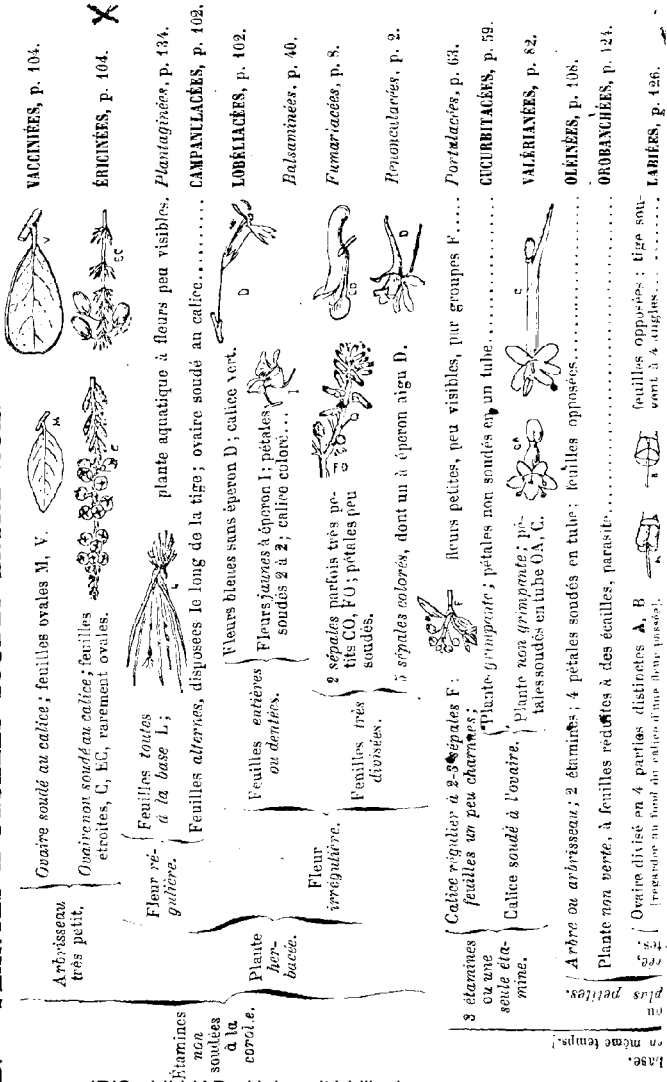 Étamines
non
soudées
à la
corolle.
Arbrisseau
très petit.
Ovaire soudé au calice; feuilles ovales M, V.
M
V
VACCINIÉES, p. 104.
Ovaire non soudé au calice; feuilles
étroites, C, EC, rarement ovales.
C
EC
ÉRICINÉES, p. 104.
Plante
her-
bacée.
Fleur ré-
gulière.
Feuilles toutes
à la base L;
L
plante aquatique à fleurs peu visibles.
Plantaginées, p. 134.
Feuilles alternes, disposées le long de la tige; ovaire soudé au calice..........
CAMPANULACÉES, p. 102.
Fleur
irrégulière.
Feuilles entières
ou dentées.
Fleurs bleues sans éperon D; calice vert.
D
LOBÉLIACÉES, p. 102.
Fleurs jaunes à éperon I; pétales
soudés 2 à 2; calice coloré...
Balsaminées, p. 40.
Feuilles très
divisées.
2 sépales parfois très pe-
tits CO, FO; pétales peu
soudés.
FO
CO
Fumariacées, p. 8.
5 sépales colorés, dont un à éperon aigu D.
D
Renonculacées, p. 2.
3 étamines
ou une
seule éta-
mine.
Calice régulier à 2-3 sépales F:
feuilles un peu charnues;
F
fleurs petites, peu visibles, par groupes F.....
Portulacées, p. 63.
Calice soudé à l'ovaire.
Plante grimpante; pétales non soudés en un tube..........
CUCURBITACÉES, p. 59.
Plante non grimpante; pé-
tales soudés en tube OA, C.
OA
C
VALÉRIANÉES, p. 82.
Arbre ou arbrisseau; 2 étamines; 4 pétales soudés en tube; feuilles opposées..........
OLÉINÉES, p. 108.
Plante non verte, à feuilles réduites à des écailles, parasite..........
OROBANCHÉES, p. 124.
Ovaire divisé en 4 parties distinctes A, B
[regarder au fond du calice d'une fleur passée].
A
B
feuilles opposées; tige sou-
vent à 4 angles........
LABIÉES, p. 126.
ou
plus petites.
en même temps].
base.